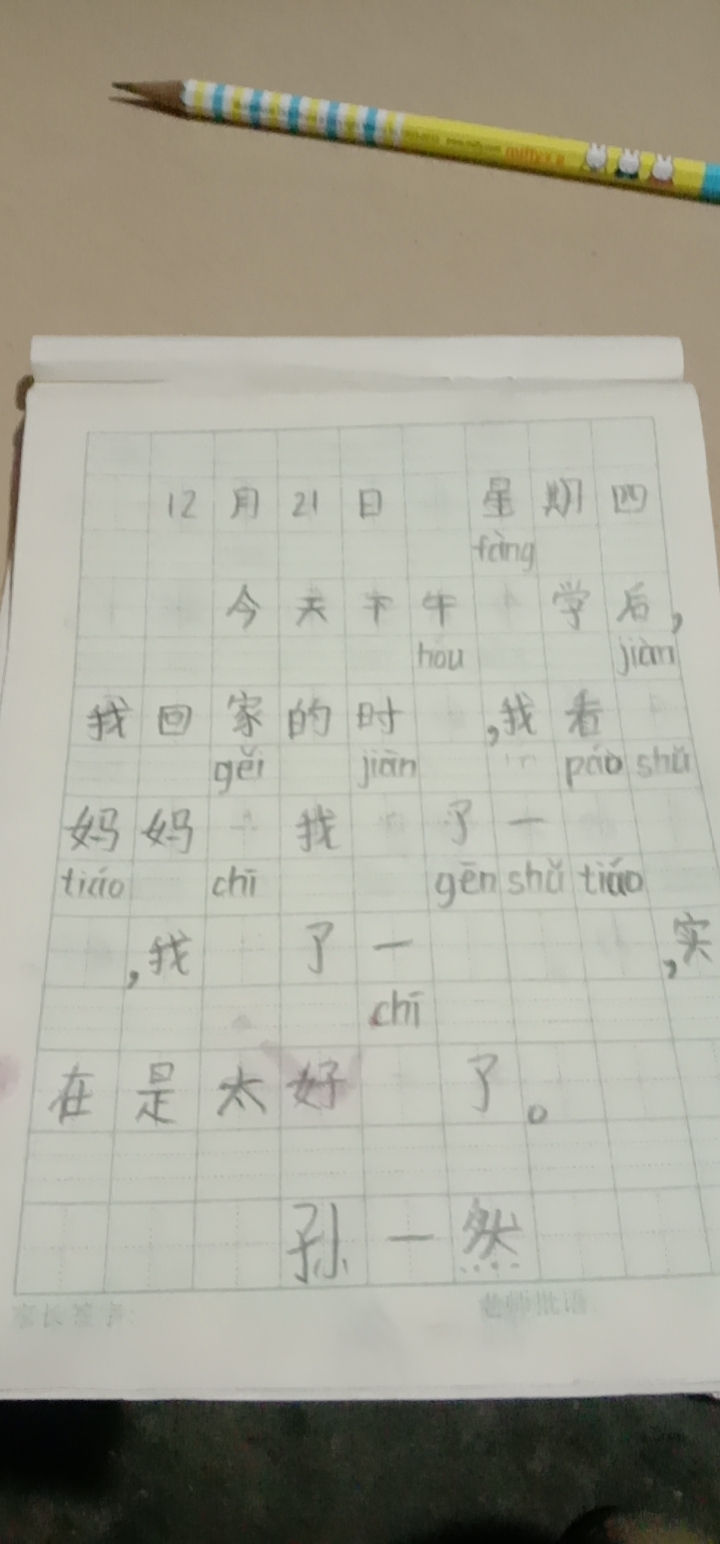 miffy
12月21日 星期四
fàng
今天下午 学后,
hóu jiàn
我回家的时 ,我看
gěi jiān páo shǔ
妈妈 我 了一
tiáo chī gēn shǔ tiáo
,我 了一 ,实
chī
在是太好 了。
孙一然
家长签字:
老师批语: